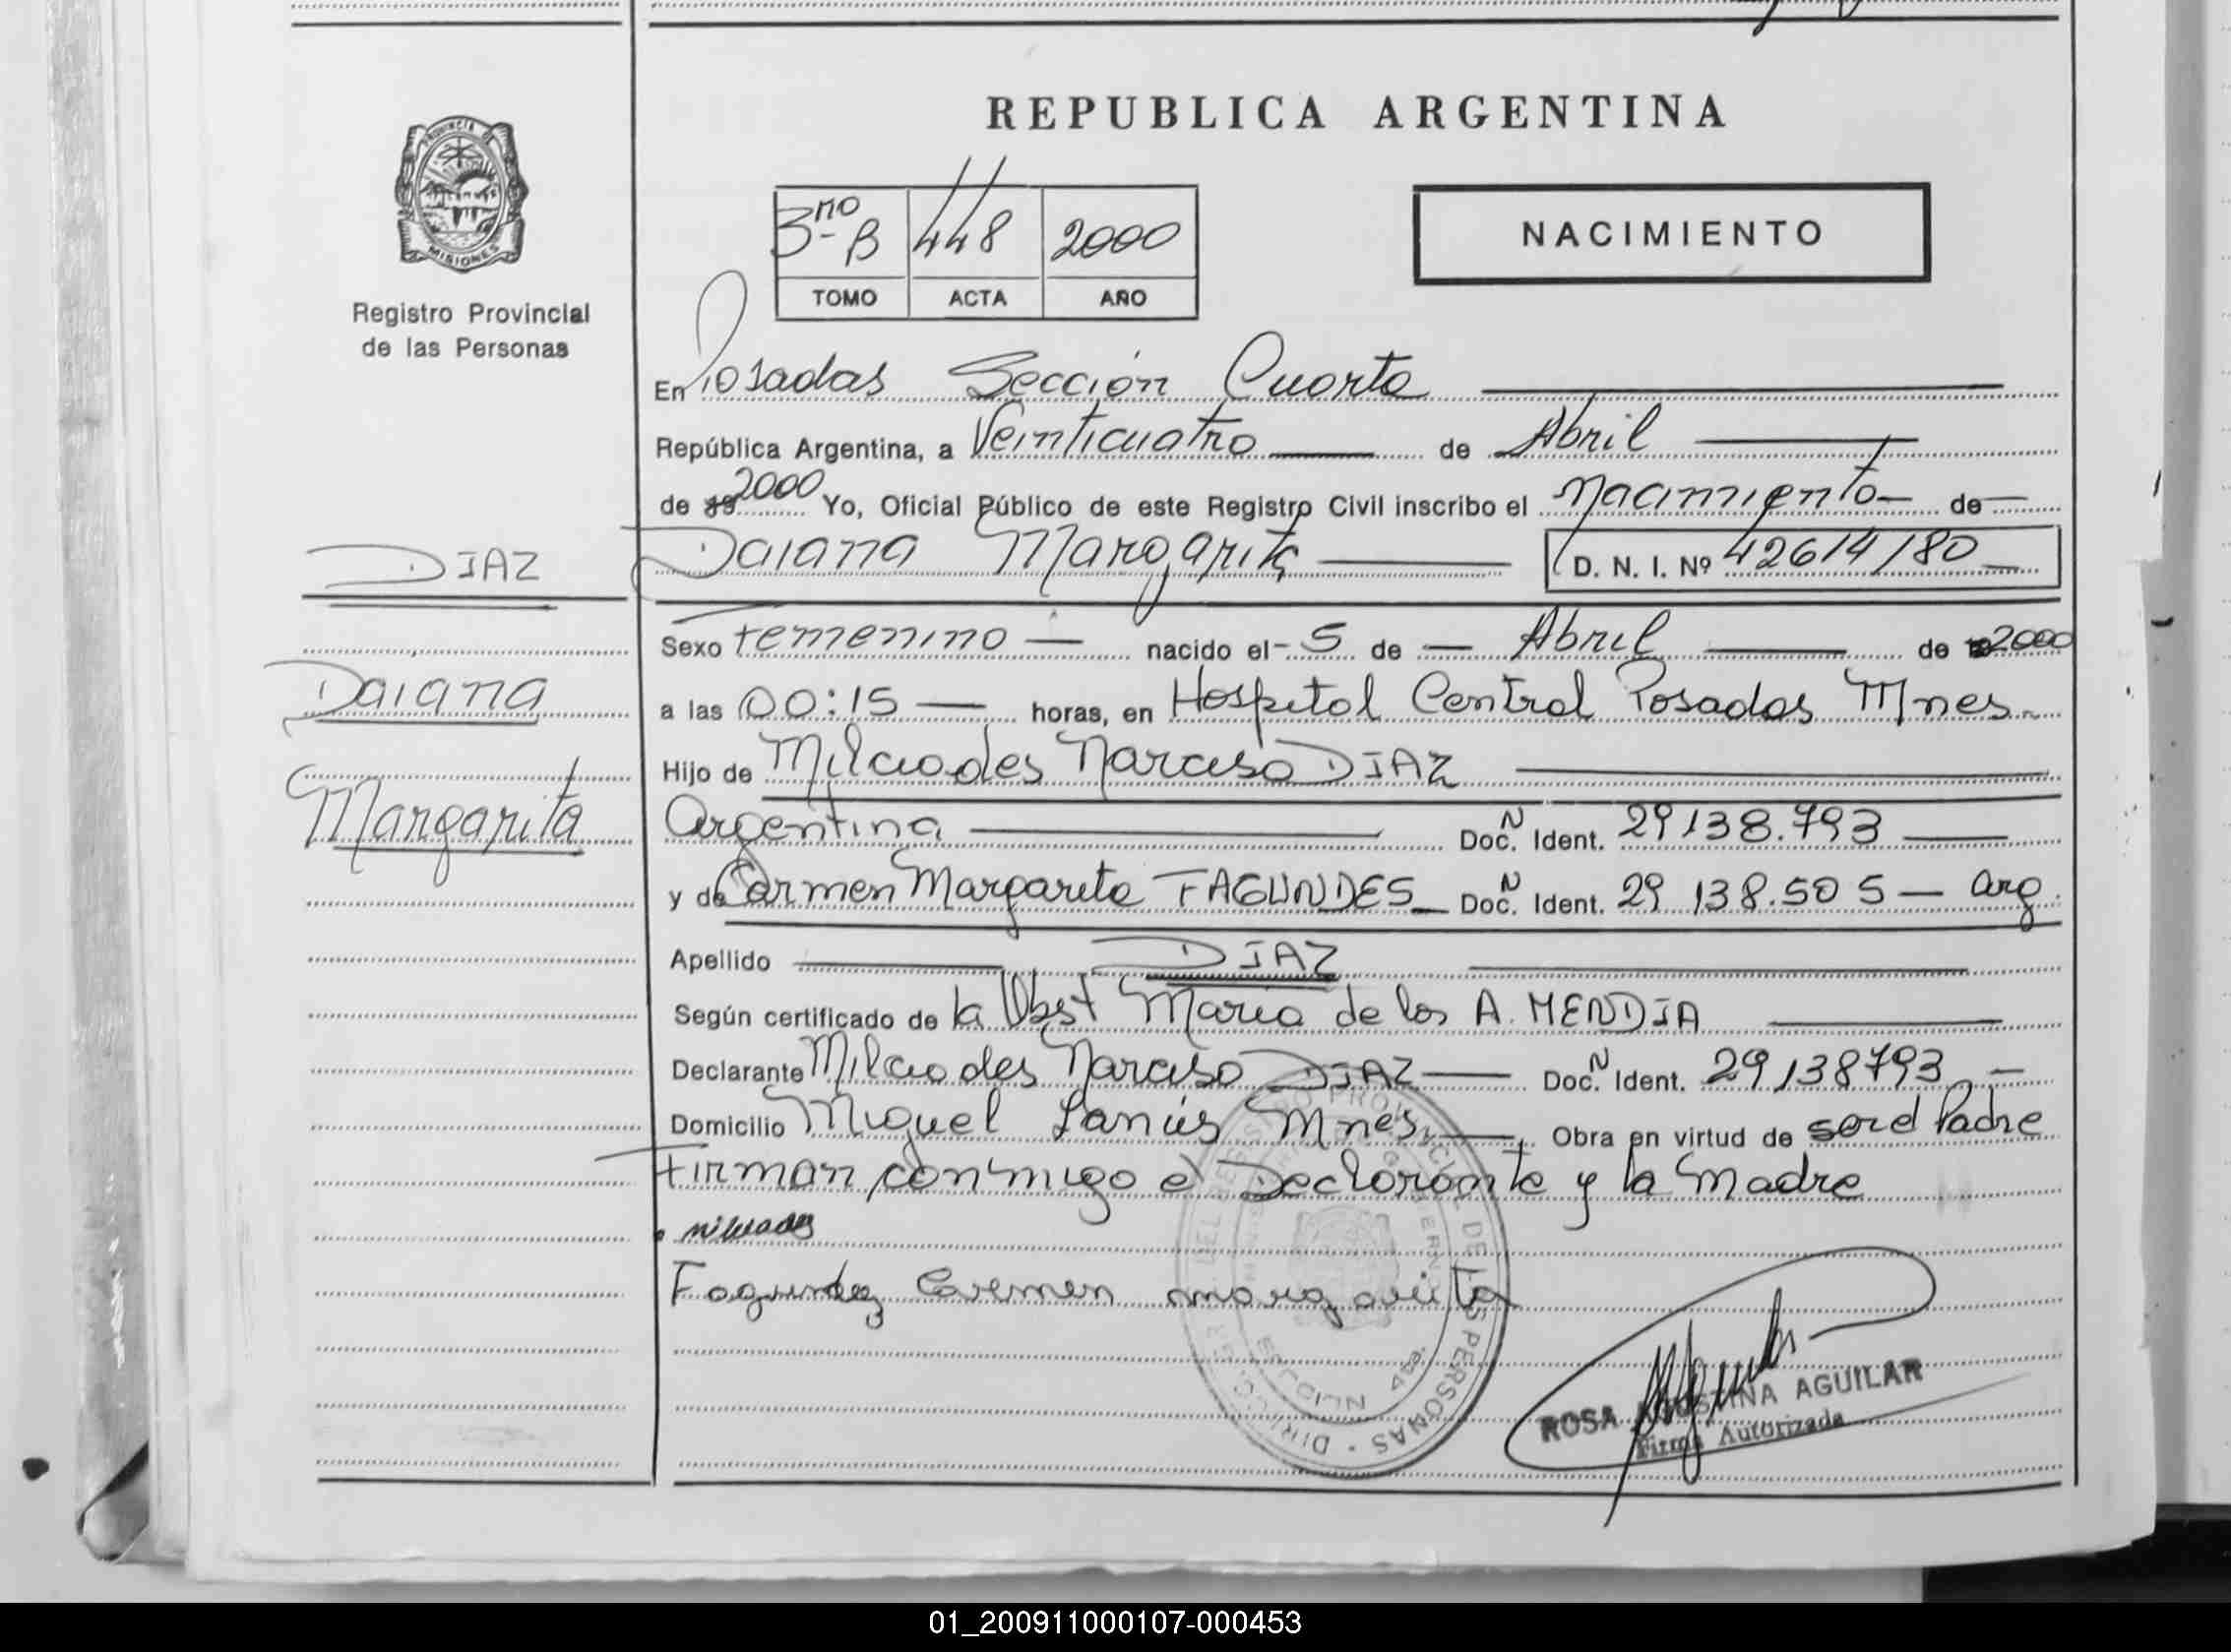 REPUBLICA ARGENTINA
PROVINCIA DE
MISIONES
Registro Provincial
de las Personas
3ro B 448 2000
TOMO ACTA AÑO
NACIMIENTO
En Posadas Sección Cuarta
República Argentina, a Veinticuatro de Abril
de 19 2000 Yo, Oficial Público de este Registro Civil inscribo el Nacimiento de
DIAZ
Daiana Margarita D. N. I. Nº 42614180
Sexo Femenino nacido el 5 de Abril de 2000
Daiana
a las 00:15 horas, en Hospital Central Posadas Mnes.
Hijo de Milciades Narciso DIAZ
Margarita
Argentina Doc. N Ident. 29138.793
y de Carmen Margarita FAGUNDES Doc. N Ident. 29 138.505 — Arg.
Apellido DIAZ
Según certificado de la Obst Maria de los A. MENDIA
Declarante Milciades Narciso DIAZ Doc. N Ident. 29138793
Domicilio Miguel Lanús Mnes, Obra en virtud de ser el Padre
Firman conmigo el Declarante y la Madre
milciades
Fagundez Carmen margarita
ROSA AGUSTINA AGUILAR
Firma Autorizada
01_200911000107-000453